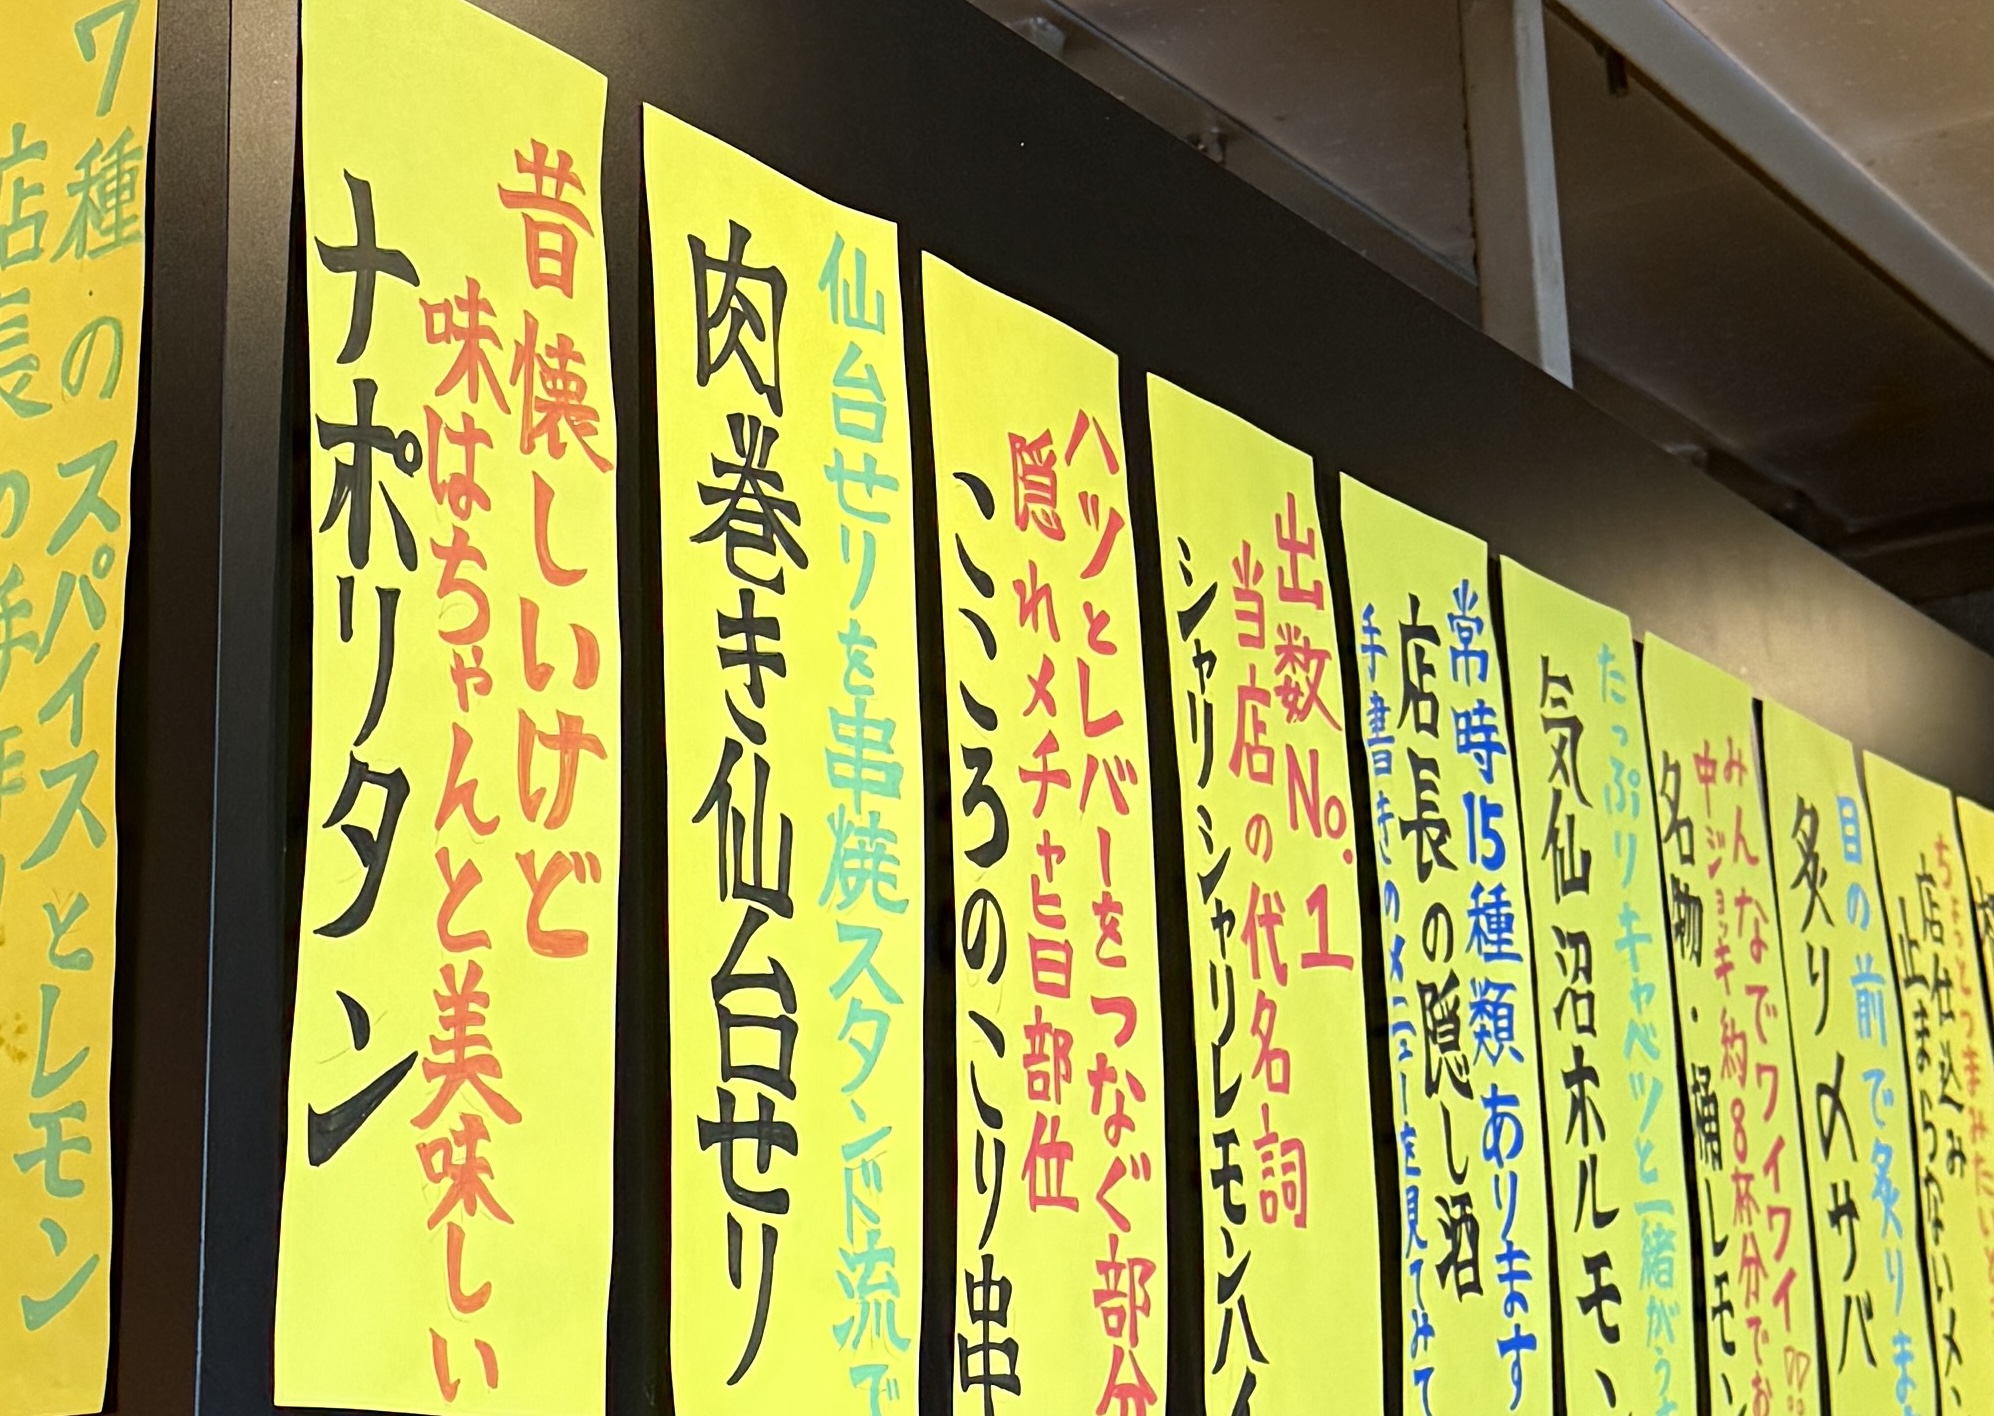 7種のスパイスとレモン
店長の手作り
昔懐しいけど
味はちゃんと美味しい
ナポリタン
仙台せりを串焼スタンド流で
肉巻き仙台せり
ハツとレバーをつなぐ部分
隠れメチャ旨部位
こころのこり串
出数No.1
当店の代名詞
シャリシャリレモンハイ
常時15種類あります
店長の隠し酒
手書きのメニューを見てみて
たっぷりキャベツと一緒がうま
気仙沼ホルモン
みんなでワイワイ!!
中ジョッキ約8杯分でお
名物・桶レモン
目の前で炙りま
炙り〆サバ
ちょっとつまみたいと
店仕込み
止まらないメン